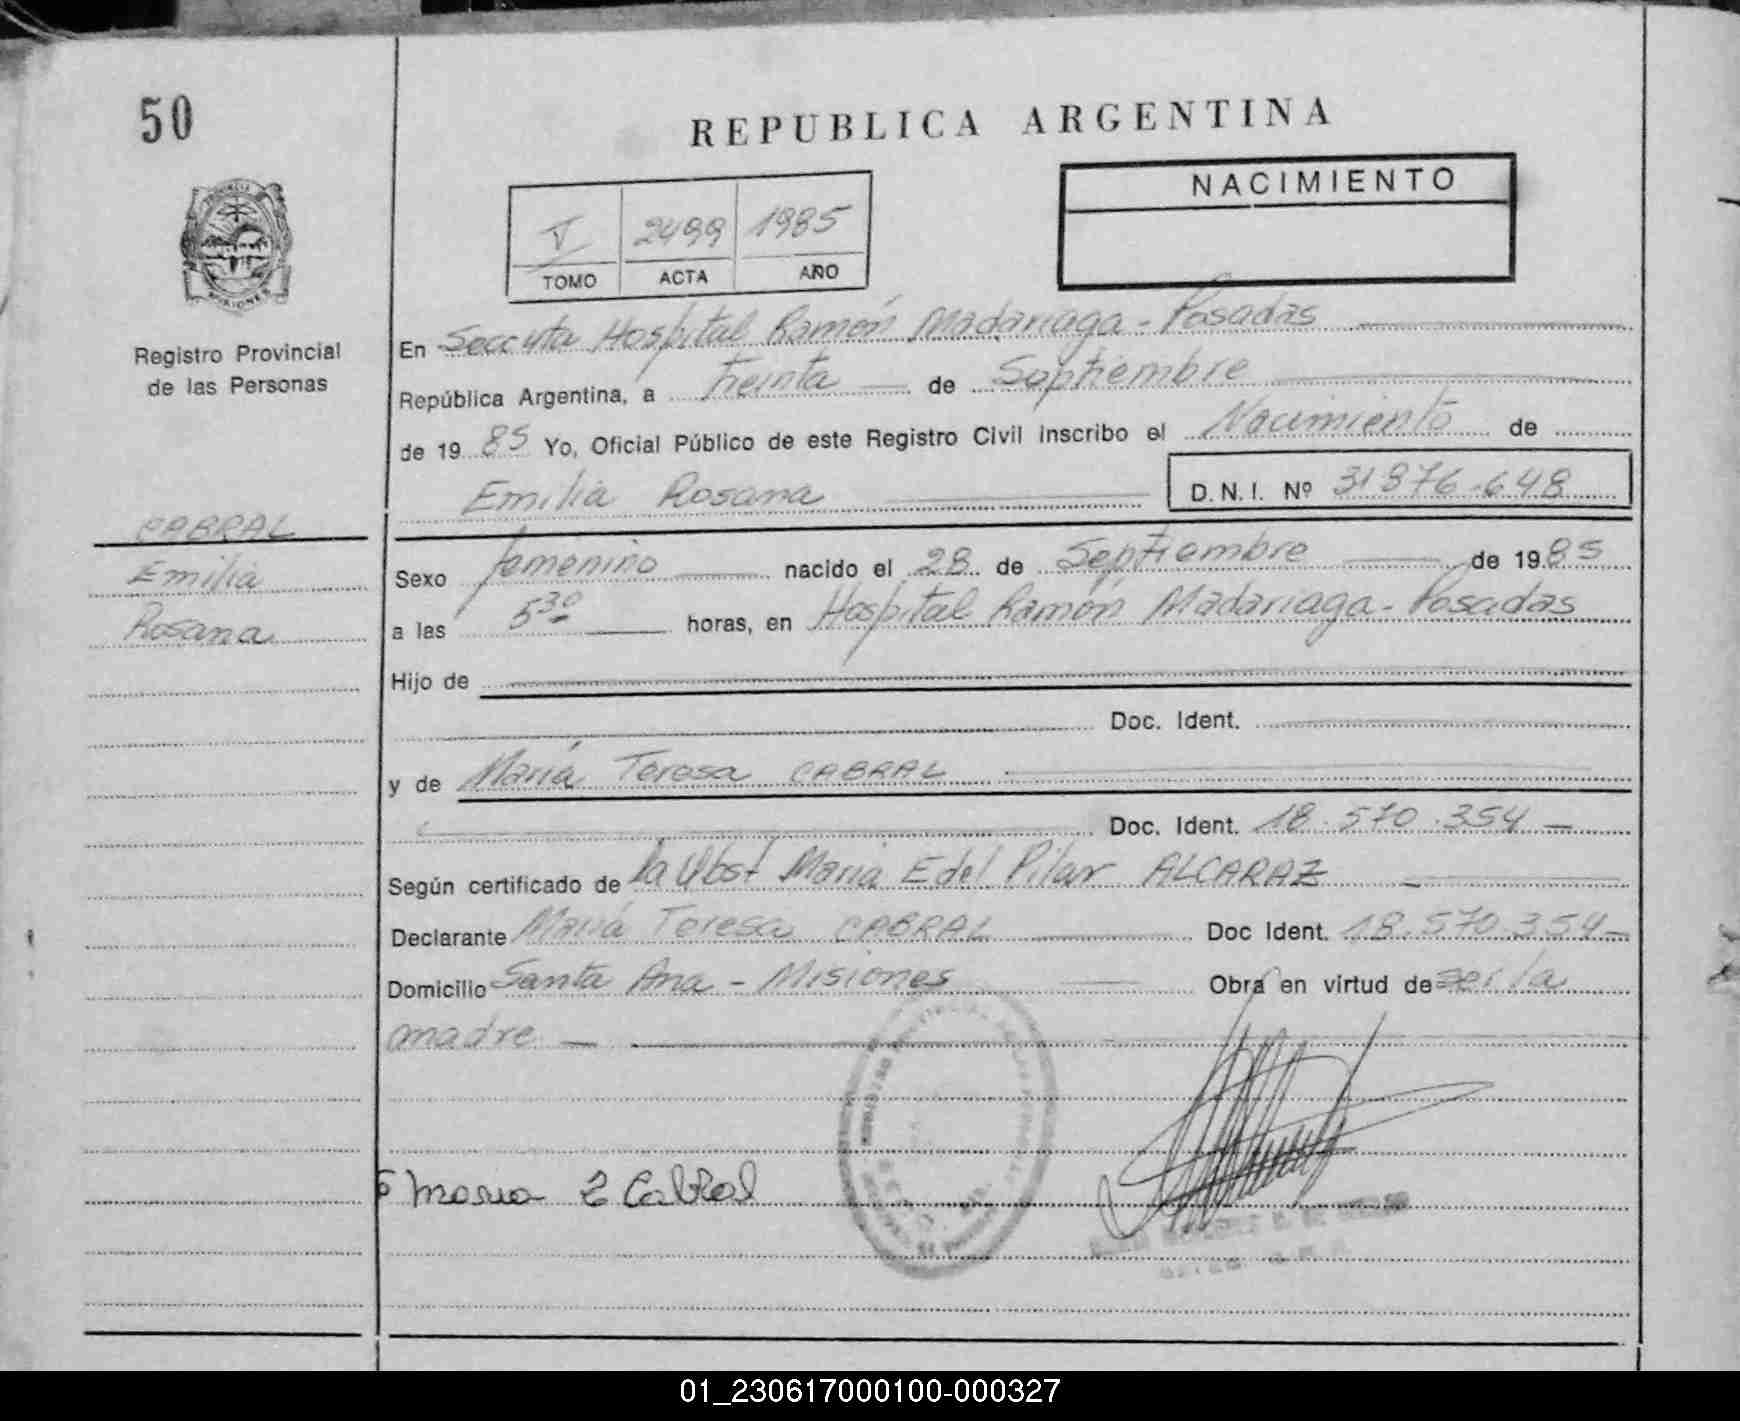 50
REPUBLICA ARGENTINA
NACIMIENTO
V 2499 1985
TOMO ACTA AÑO
PROVINCIA
MISIONES
Registro Provincial
de las Personas
En Hospital Ramón Madariaga - Posadas
República Argentina, a treinta de Septiembre
de 1985 Yo, Oficial Público de este Registro Civil inscribo el Nacimiento de
Emilia Rosana D.N.I. Nº 31.876.648
CABRAL
Emilia
Rosana
Sexo femenino nacido el 28 de Septiembre de 1985
a las 5 30 horas, en Hospital Ramón Madariaga - Posadas
Hijo de
Doc. Ident.
y de María Teresa CABRAL
Doc. Ident. 18.570.354
Según certificado de la Obst María E del Pilar ALCARAZ
Declarante María Teresa CABRAL Doc Ident. 18.570.354
Domicilio Santa Ana - Misiones Obra en virtud de ser la
madre
Maria Cabral
01_230617000100-000327